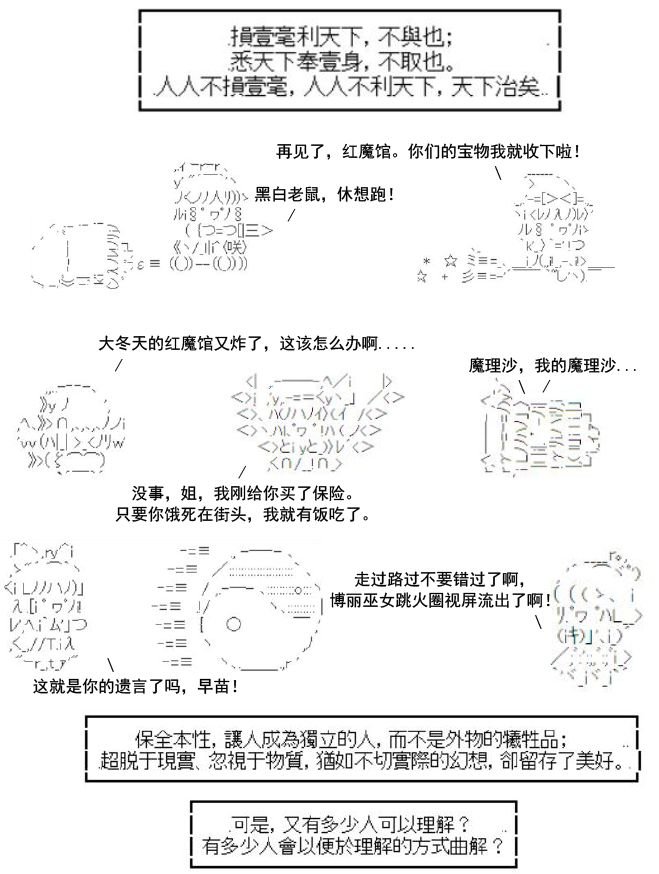 損壹毫利天下，不與也；
悉天下奉壹身，不取也。
人人不損壹毫，人人不利天下，天下治矣
再见了，红魔馆。你们的宝物我就收下啦！
黑白老鼠，休想跑！
大冬天的红魔馆又炸了，这该怎么办啊.....
魔理沙，我的魔理沙...
没事，姐，我刚给你买了保险。
只要你饿死在街头，我就有饭吃了。
走过路过不要错过了啊，
博丽巫女跳火圈视屏流出了啊！
这就是你的遗言了吗，早苗！
保全本性，讓人成為獨立的人，而不是外物的犧牲品；
超脱于現實、忽視于物質，猶如不切實際的幻想，卻留存了美好。
可是，又有多少人可以理解？
有多少人會以便於理解的方式曲解？